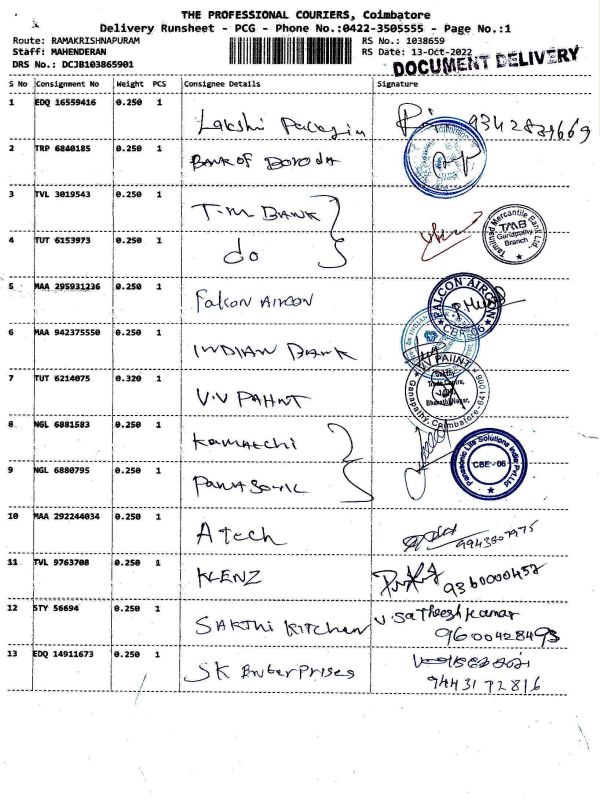 THE PROFESSIONAL COURIERS, Coimbatore
Delivery Runsheet - PCG - Phone No.:0422-3505555 - Page No.:1
Route: RAMAKRISHNAPURAM RS No.: 1038659
Staff: MAHENDERAN RS Date: 13-Oct-2022
DRS No.: DCJB103865901 DOCUMENT DELIVERY
S No Consignment No Weight PCS Consignee Details Signature
1 EDQ 16559416 0.250 1 Lakshi 9342834669
2 TRP 6840185 0.250 1 BANK OF BORODA
3 TVL 3019543 0.250 1 T.M BANK Tamilnad Mercantile Bank Ltd., TMB Ganapathy Branch
4 TUT 6153973 0.250 1 do
5 MAA 295931236 0.250 1 Falcon AIRCON FALCON AIRCON CBE-06
6 MAA 942375550 0.250 1 INDIAN BANK
7 TUT 6214075 0.320 1 V.V PAHNT VV PAIINT Ganapathy, Coimbatore-641006
8 NGL 6881583 0.250 1 Kamatchi
9 NGL 6880795 0.250 1 PANASONIC Panasonic Life Solutions India Pvt.Ltd CBE-06
10 MAA 292244034 0.250 1 A tech 9943807975
11 TVL 9763708 0.250 1 KLENZ 9360000457
12 STY 56694 0.250 1 SAKTHI KITCHEN V.Satheesh kumar
9600428493
13 EDQ 14911673 0.250 1 SK Enterprises
9443172816